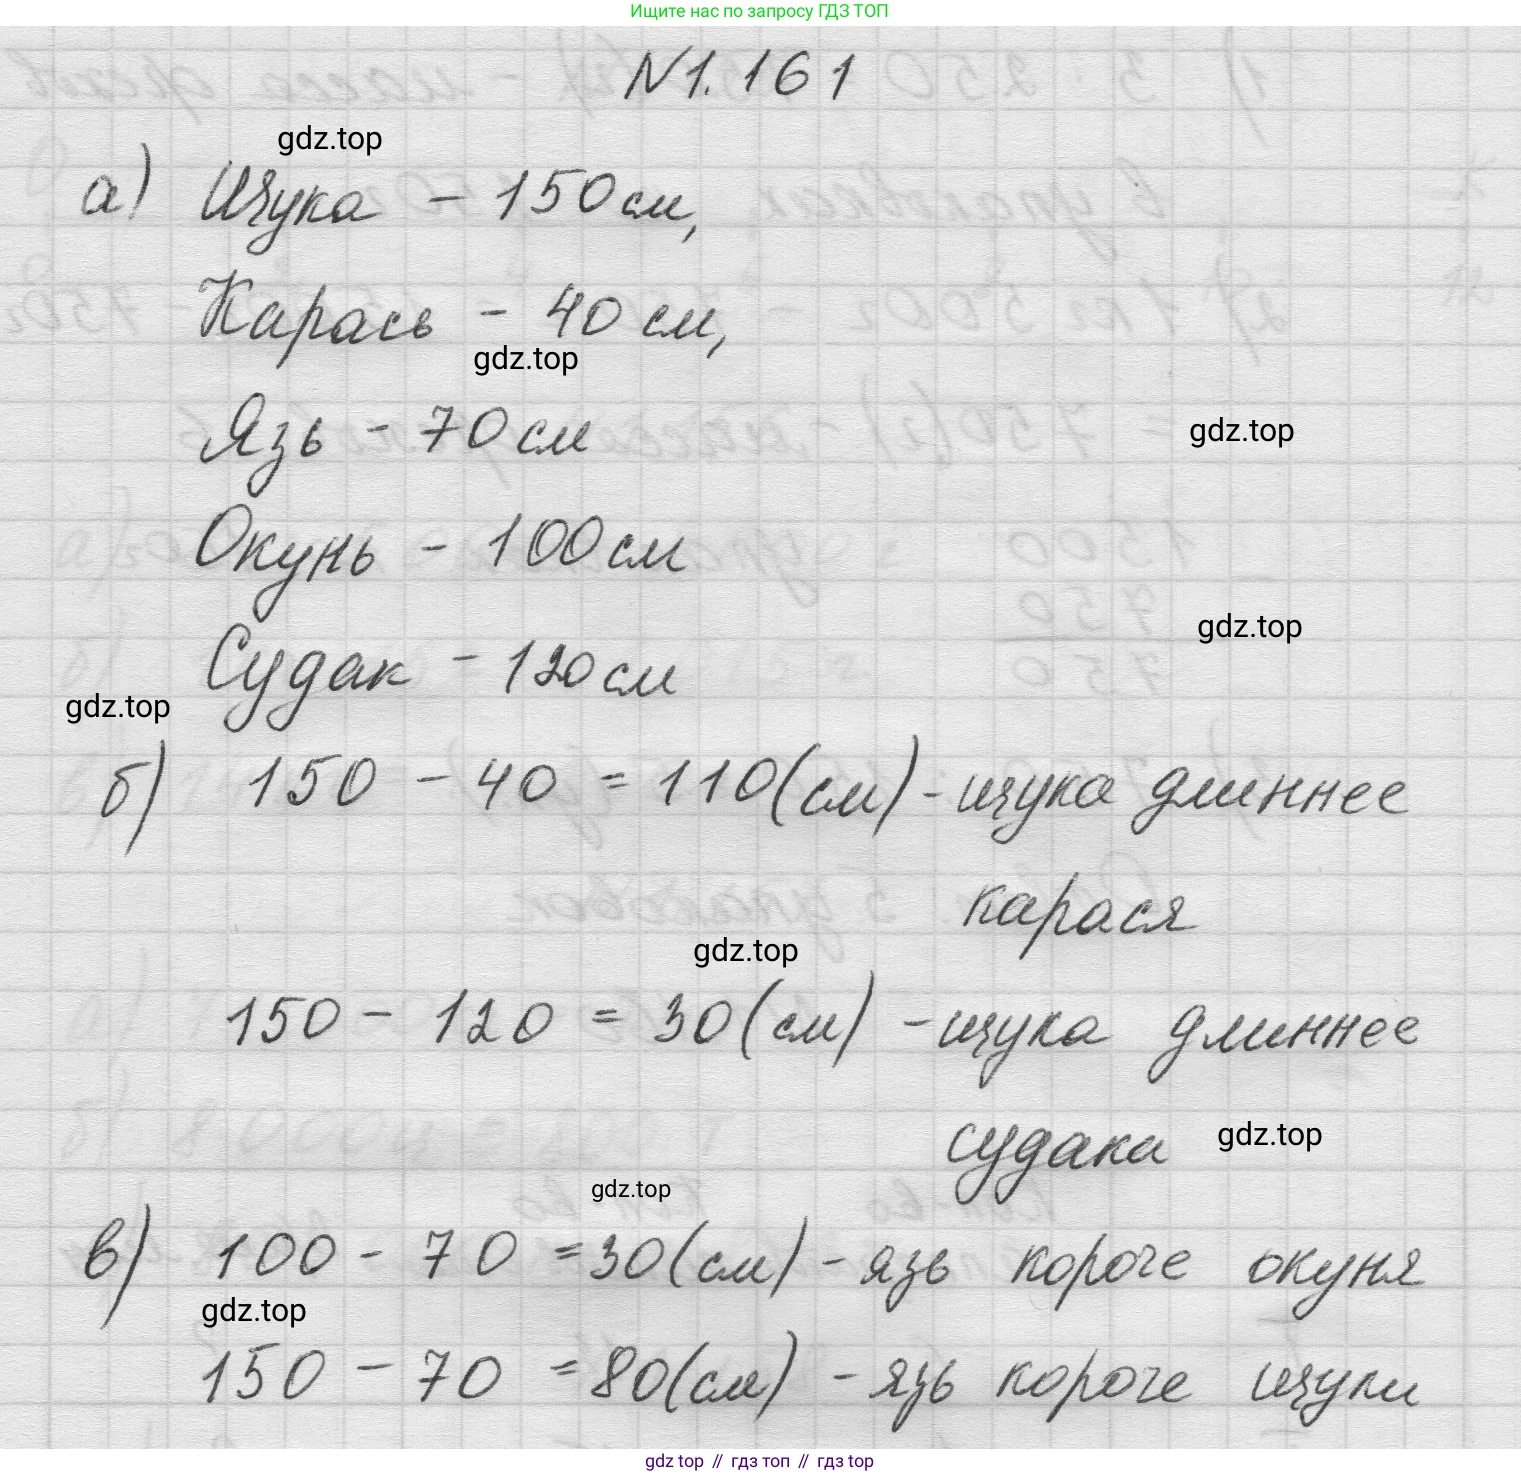 Ищите нас по запросу ГДЗ ТОП
№1.161
gdz.top
а) Щука - 150 см,
Карась - 40 см,
gdz.top
Язь - 70 см
gdz.top
Окунь - 100 см
gdz.top
Судак - 120 см
gdz.top
б) 150 - 40 = 110 (см) - щука длиннее
карася
gdz.top
150 - 120 = 30 (см) - щука длиннее
судака
gdz.top
gdz.top
в) 100 - 70 = 30 (см) - язь короче окуня
gdz.top
150 - 70 = 80 (см) - язь короче щуки
gdz top // гдз топ // гдз.top